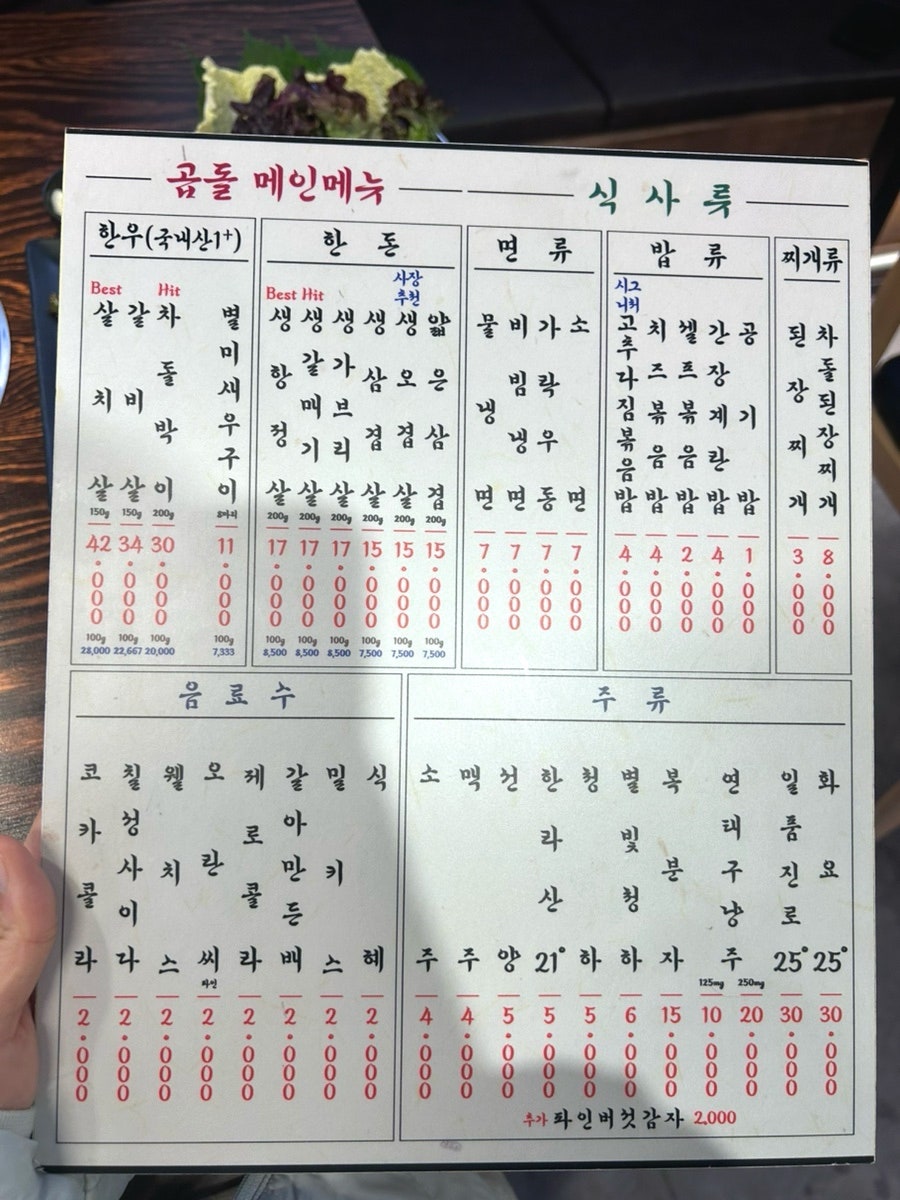 곱돌 메인메뉴
식사류
한우(국내산1+)
Best 살치살 150g 42.000 100g 28,000
갈비살 150g 34.000 100g 22,667
Hit 차돌박이 200g 30.000 100g 20,000
별미새우구이 8마리 11.000 100g 7,333
한돈
Best 생항정살 200g 17.000 100g 8,500
Hit 생갈매기살 200g 17.000 100g 8,500
생가브리살 200g 17.000 100g 8,500
생삼겹살 200g 15.000 100g 7,500
사장추천 생오겹살 200g 15.000 100g 7,500
얇은삼겹 200g 15.000 100g 7,500
면류
물냉면 7.000
비빔냉면 7.000
가락우동 7.000
소면 7.000
밥류
시그니춰 고추라짐볶음밥 4.000
치즈볶음밥 4.000
쉘프볶음밥 2.000
간장계란밥 4.000
공기밥 1.000
찌개류
된장찌개 3.000
차돌된장찌개 8.000
음료수
코카콜라 2.000
칠성사이다 2.000
웰치스 2.000
오란씨 파인 2.000
제로콜라 2.000
갈아만든배 2.000
밀키스 2.000
식혜 2.000
주류
소주 4.000
맥주 4.000
천양 5.000
한라산21° 5.000
청하 5.000
별빛청하 6.000
복분자 15.000
연태구냥주 125mg 10.000 250mg 20.000
일품진로25° 30.000
화요25° 30.000
추가 파인버첫감자 2,000